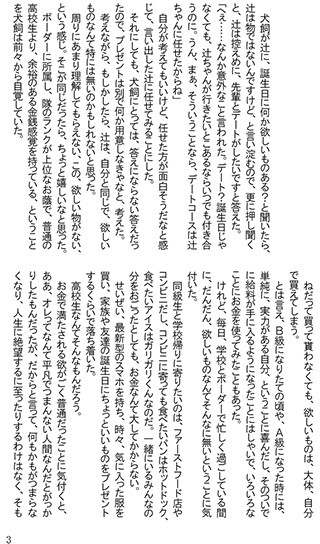 犬飼が辻に、誕生日に何か欲しいものある？と聞いたら、
辻は物ではないんですけど、と言い淀むので、更に押し聞く
と、辻は控えめに、先輩とデートがしたいですと答えた。
「へぇ……なんか意外なこと言われた。デート？誕生日じゃ
なくても、辻ちゃんが行きたいとこあるならいつでも付き合
うのに。うん、まあ、そういうことなら、デートコースは辻
ちゃんに任せたからね」
自分が考えてもいいけど、任せた方が面白そうだなと感
じて、言い出した辻に任せてみることにした。
それにしても、犬飼にとっては、答えにならない答えだっ
たので、プレゼントは別で何か用意しなきゃなと、考えた。
考えながら、もしかしたら、辻は、自分と同じで、欲しい
ものなんて特には無いのかもしれないと思った。
周りにあまり理解してもらえない、この、欲しい物がない、
という感じ。そこが同じだったら、ちょっと嬉しいなと思った。
ボーダーに所属し、隊のランクが上位なお蔭で、普通の
高校生より、余裕のある金銭感覚を持っている、ということ
を犬飼は前々から自覚していた。
ねだって買って貰わなくても、欲しいものは、大体、自分
で買えてしまう。
とは言え、B級になりたての頃や、A級になった時には、
単純に、実力がある自分、ということに喜んだし、そのつい
でに給料が手に入るようになったことにはしゃいで、いろいろな
ことにお金を使ってみたこともあった。
けれど、毎日、学校とボーダーで忙しく過ごしている間
に、だんだん、欲しいものなんてそんなに無いということに気
付いた。
同級生と学校帰りに寄りたいのは、ファーストフード店や
コンビニだし、コンビニに寄っても食べたいパンはホットドック、
食べたいアイスはガリガリくんなのだ。一緒にいるみんなの
分をおごったとしても、お金なんて大してかからない。
せいぜい、最新型のスマホを持ち、時々、気に入った服を
買い、家族や友達の誕生日にちょっといいものをプレゼント
するくらいで落ち着いた。
高校生なんてそんなもんだろう。
お金で満たされる欲がごく普通だったことに気付くと、
ああ、オレってなんて平凡でつまんない人間なんだとがっか
りしたもんだったが、だからと言って、何もかもがつまらな
くなり、人生に絶望するに至ったりするわけはなく、そも
3